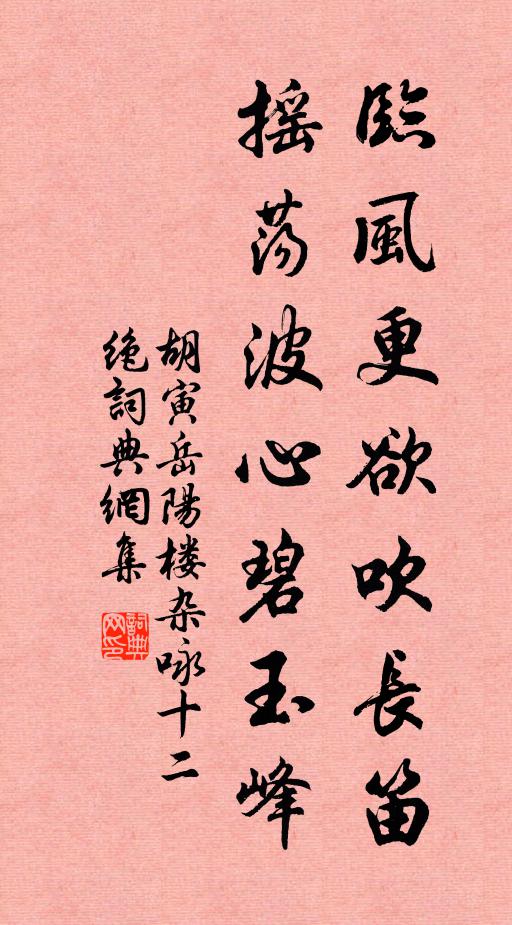 臨風更欲吹長笛
摇蕩波心碧玉峰
胡寅岳陽楼杂咏十二
绝詞典網集
詞典
网印